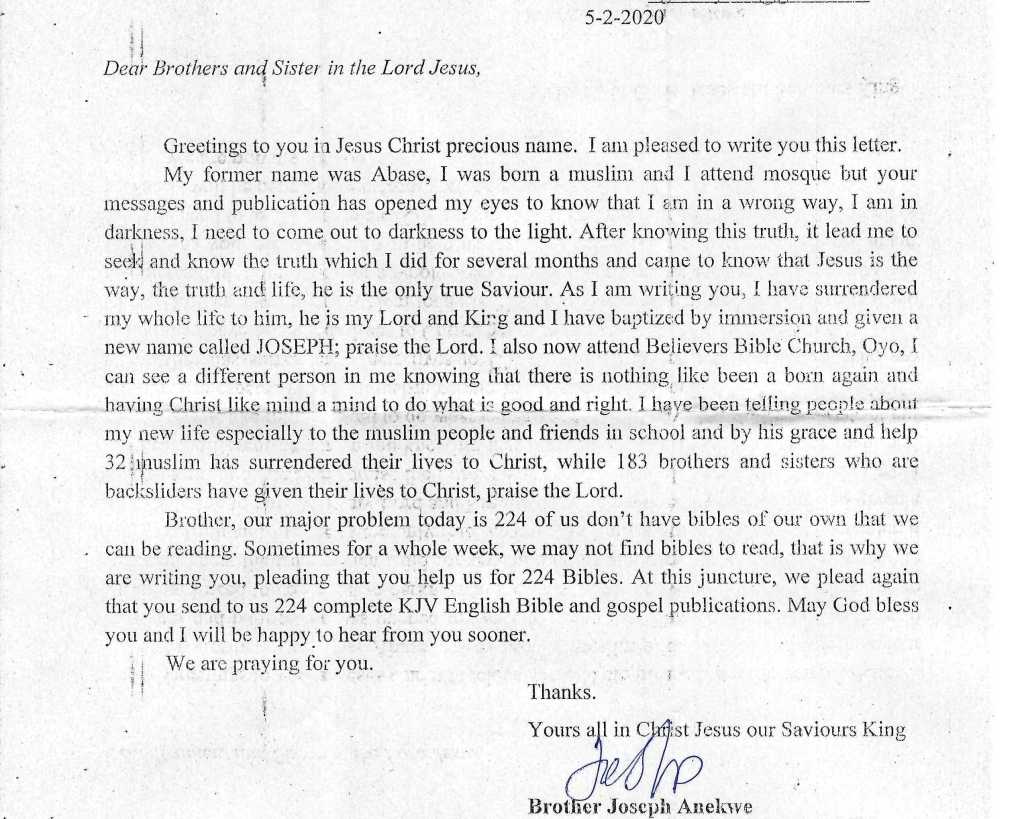 5-2-2020
Dear Brothers and Sister in the Lord Jesus,
Greetings to you in Jesus Christ precious name. I am pleased to write you this letter.
My former name was Abase, I was born a muslim and I attend mosque but your
messages and publication has opened my eyes to know that I am in a wrong way, I am in
darkness, I need to come out to darkness to the light. After knowing this truth, it lead me to
seek and know the truth which I did for several months and came to know that Jesus is the
way, the truth and life, he is the only true Saviour. As I am writing you, I have surrendered
my whole life to him, he is my Lord and King and I have baptized by immersion and given a
new name called JOSEPH; praise the Lord. I also now attend Believers Bible Church, Oyo, I
can see a different person in me knowing that there is nothing like been a born again and
having Christ like mind a mind to do what is good and right. I have been telling people about
my new life especially to the muslim people and friends in school and by his grace and help
32 muslim has surrendered their lives to Christ, while 183 brothers and sisters who are
backsliders have given their lives to Christ, praise the Lord.
Brother, our major problem today is 224 of us don't have bibles of our own that we
can be reading. Sometimes for a whole week, we may not find bibles to read, that is why we
are writing you, pleading that you help us for 224 Bibles. At this juncture, we plead again
that you send to us 224 complete KJV English Bible and gospel publications. May God bless
you and I will be happy to hear from you sooner.
We are praying for you.
Thanks.
Yours all in Christ Jesus our Saviours King
Brother Joseph Anekwe